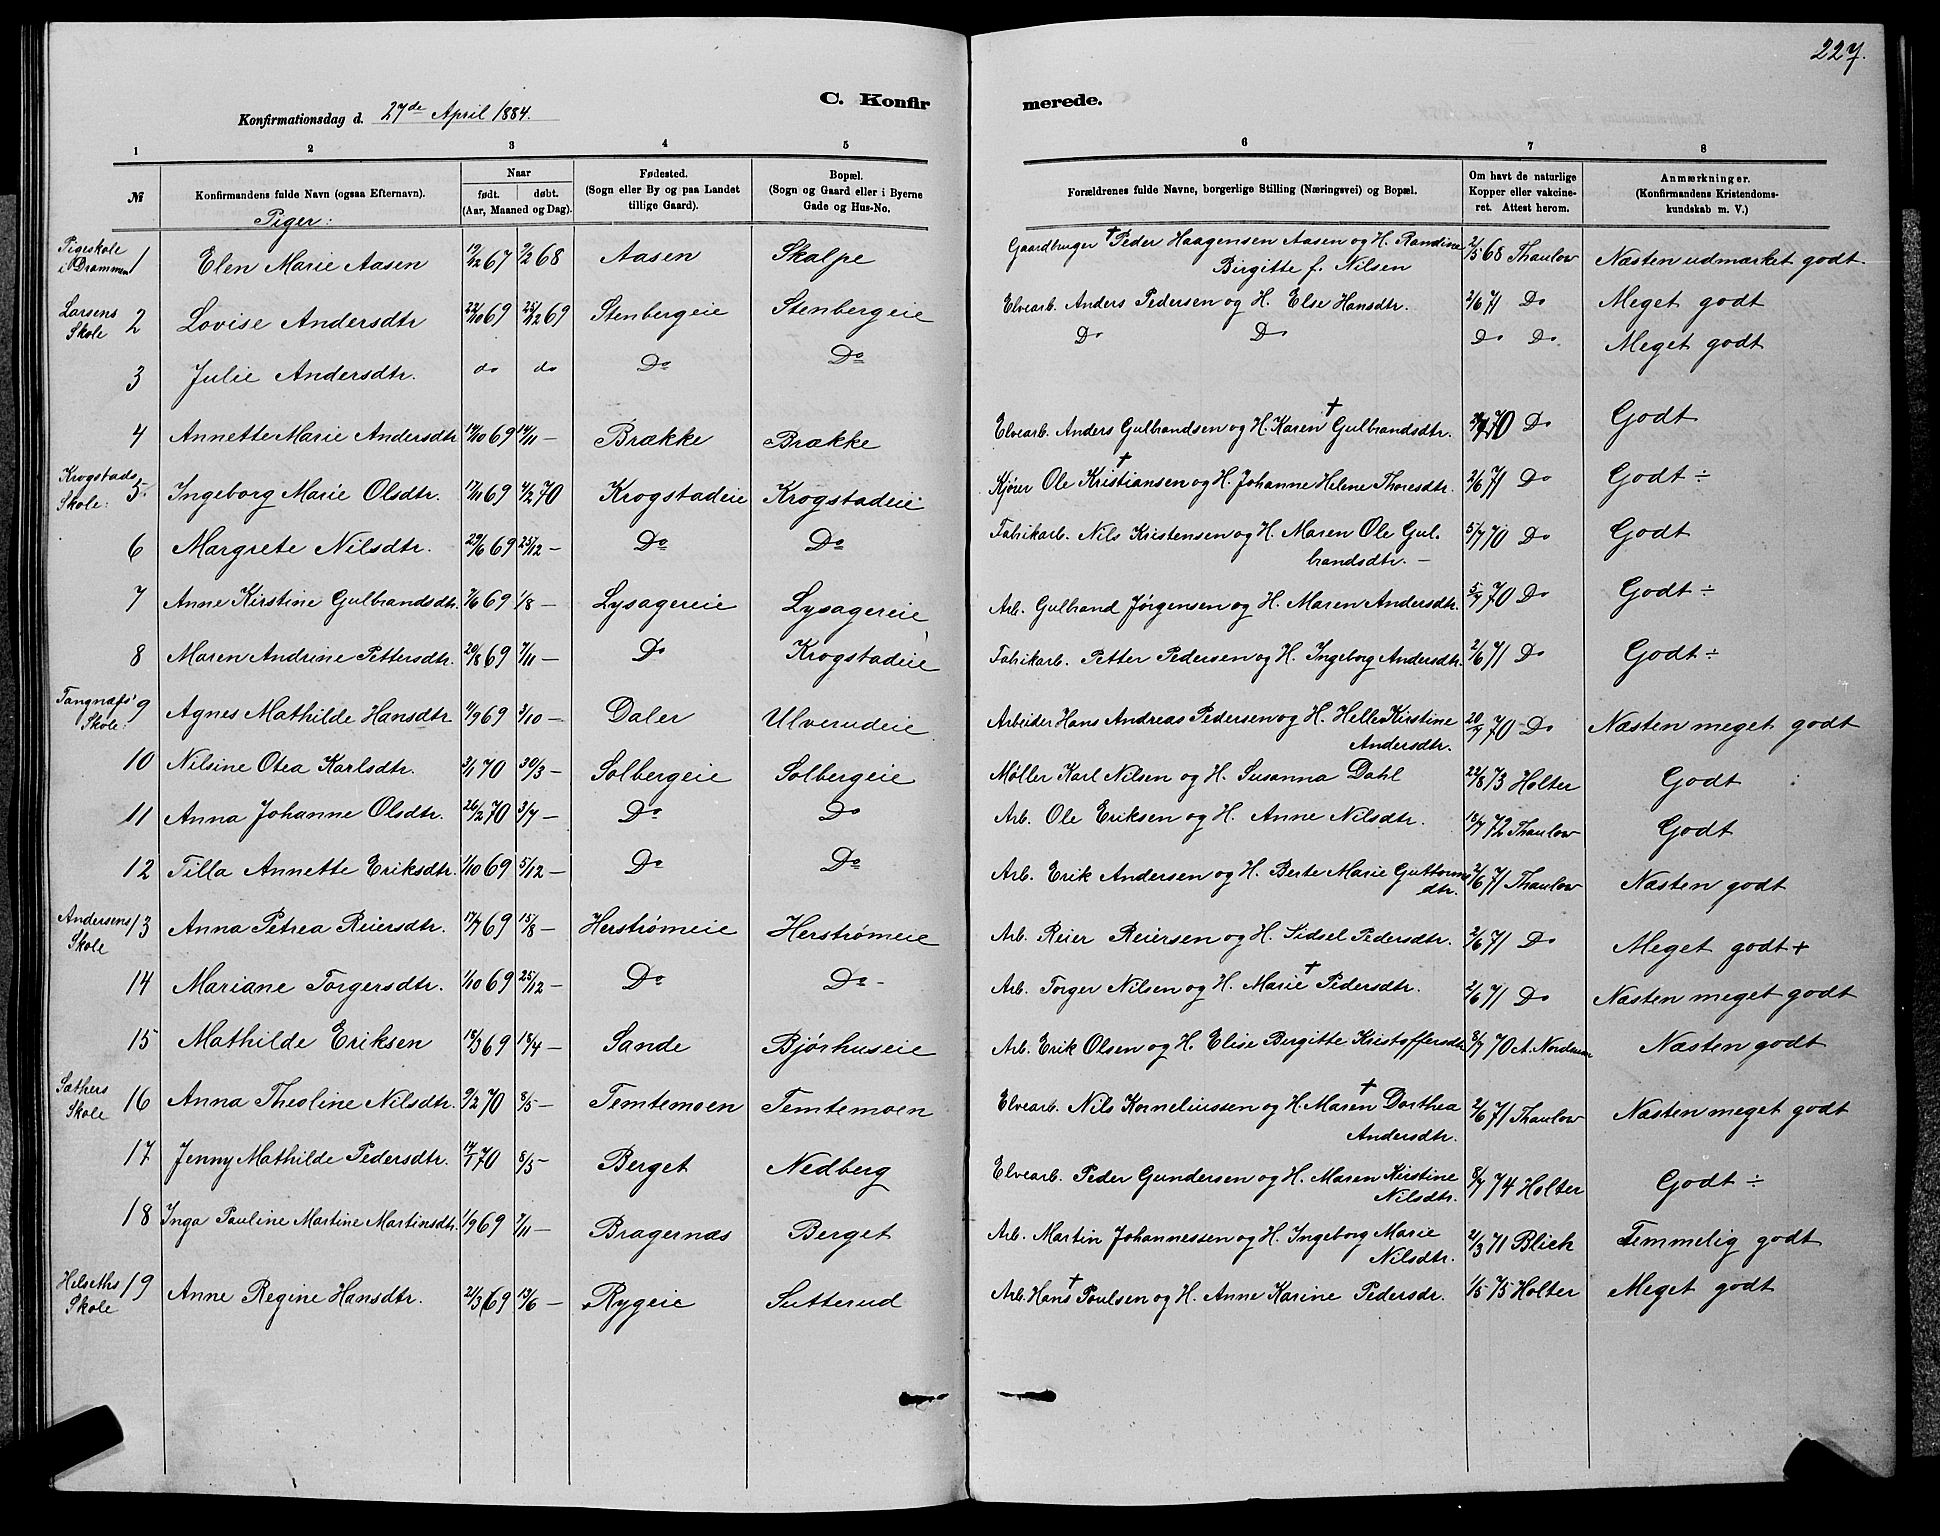 227.
C. Konfir merede.
Konfirmationsdag d. 27de April 1884.
1 2 3 4 5 6 7 8
№ Konfirmandens fulde Navn (ogsaa Efternavn). Naar født. døbt. (Aar, Maaned og Dag). Fødested. (Sogn eller By og paa Landet tillige Gaard). Bopæl. (Sogn og Gaard eller i Byerne Gade og Hus-No. Forældrenes fulde Navne, borgerlige Stilling (Næringsvei) og Bopæl. Om havt de naturlige Kopper eller vakcineret. Attest herom. Anmærkninger. (Konfirmandens Kristendomskundskab m. V.)
Piger:
Pigeskole i Drammen 1 Elen Marie Aasen 19/12 67 2/2 68 Aasen Skalpe Gaardbruger † Peder Haagensen Aasen og H. Randine Birgitte f. Nilsen 2/5 68 Thaulow Næsten udmærket godt
Larsens Skole 2 Lovise Andersdtr 22/10 69 25/12 69 Stenbergeie Stenbergeie Elvearb. Anders Pedersen og H. Else Hansdtr. 2/6 71 Do Meget godt
3 Julie Andersdtr. do do Do Do Do Do Do Do Meget godt
4 Annette Marie Andersdtr 17/10 69 14/11 — Brække Brække Elvearb. Anders Gulbrandsen og H. Karen † Gulbrandsdtr. 70 Do Godt
Krogstads Skole: 5. Ingeborg Marie Olsdtr. 17/11 69 4/2 70 Krogstadeie Krogstadeie Kjører Ole † Kristiansen og H. Johanne Helene Thoresdtr. 2/6 71 Do Godt ÷
6 Margrete Nilsdtr. 29/6 69 25/12 — Do Do Fabrikarb. Nils Kristensen og H. Maren Ole Gulbrandsdtr. — 5/7 70 Do Godt
7 Anne Kirstine Gulbrandsdtr. 7/6 69 1/8 — Lysagereie Lysagereie Arb. Gulbrand Jørgensen og H. Maren Andersdtr. 5/7 70 Do Godt ÷
8 Maren Andrine Pettersdtr. 20/8 69 7/11 — Do Krogstadeie Fabrikarb. Petter Pedersen og H. Ingeborg Andersdtr. 2/6 71 Do Godt ÷
Tangnæss' Skole: 9 Agnes Mathilde Hansdtr 11/9 69 3/10 — Daler Ulverudeie Arbeider Hans Andreas Pedersen og H. Helle Kirstine Andersdtr. 20/7 70 Do Næsten meget godt
10 Nilsine Otea Karlsdtr. 3/1 70 30/3 — Solbergeie Solbergeie Møller Karl Nilsen og H. Susanna Dahl 22/8 73 Holter Godt
11 Anna Johanne Olsdtr. 26/2 70 3/7 — Do Do Arb. Ole Eriksen og H. Anne Nilsdtr. 18/7 72 Thaulow Godt
12 Tilla Annette Eriksdtr. 1/10 69 5/12 — Do Do Arb. Erik Andersen og H. Berte Marie Guttormsdtr. 2/6 71 Thaulow Næsten godt
Andersens Skole 13 Anna Petrea Reiersdtr. 17/7 69 15/8 — Herstrømeie Herstrømeie Arb. Reier Reiersen og H. Sidsel Pedersdtr. 2/6 71 Do Meget godt +
14 Mariane Torgersdtr. 1/10 69 25/12 — Do Do - Arb. Torger Nilsen og H. Marie † Pedersdtr. 2/6 71 Do Næsten meget godt
15 Mathilde Eriksen 18/3 69 18/4 — Sande Bjørhuseie Arb. Erik Olsen og H. Elise Bergitte Kristoffersdtr 8/7 70 A. Nordman Næsten godt
Sæthers Skole 16 Anna Theoline Nilsdtr. 9/2 70 8/5 — Temtemoen Temtemoen Elvearb. Nils Korneliussen og H. Maren † Dorthea Andersdtr. 2/6 71 Thaulow Næsten meget godt
17 Jenny Mathilde Pedersdtr. 17/1 70 8/5 — Berget Nedberg Elvearb. Peder Gundersen og H. Maren Kirstine Nilsdtr. 8/7 74 Holter Godt ÷
18 Inga Pauline Martine Martinsdtr. 1/9 69 7/11 — Bragernæs Berget Arb. Martin Johannessen og H. Ingeborg Marie Nilsdtr. 2/3 71 Blich Temmelig godt
Helseths Skole 19 Anne Regine Hansdtr. 21/3 69 13/6 — Rygeie Sutterud Arb. Hans † Poulsen og H. Anne Karine Pedersdr. 1/5 75 Holter Meget godt